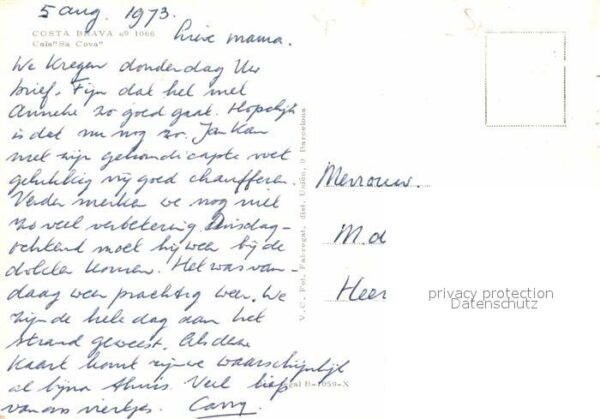 5 aug. 1973.
COSTA BRAVA 69 1066
Cala "Sa Cova"
Lieve mama.
We kregen donderdag Uw
brief. Fijn dat het met
Anneke zo goed gaat. Hopelijk
is dat nu nog zo. Jan kan
met zijn gehandicapte voet
gelukkig vrij goed chaufferen.
Verder merken we nog niet
zo veel verbetering. Dinsdag-
ochtend moet hij weer bij de
dokter komen. Het was van-
daag weer prachtig weer. We
zijn de hele dag aan het
strand geweest. Als deze
kaart komt zijn we waarschijnlijk
al bijna thuis. Veel liefs
van ons viertjes. Carry.
V. C. Fot. Fabregat, dist. Unión, 9 Barcelona
Mevrouw.
M. d
Heer
privacy protection
Datenschutz
B-1059-X